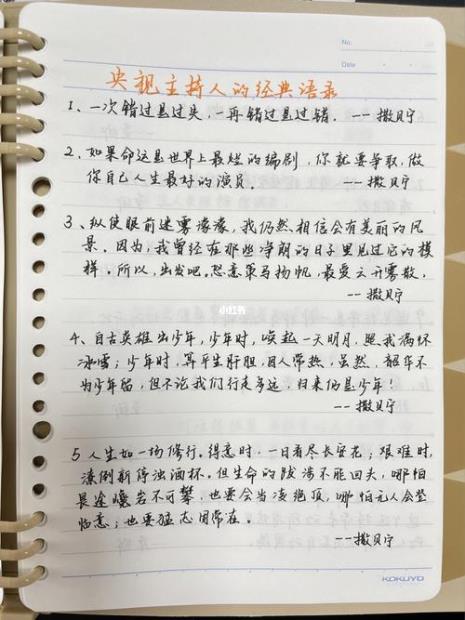 No.
Date
央视主持人的经典语录
1、一次错过是过失,一再错过是过错. -- 撒贝宁
2、如果命运是世界上最烂的编剧,你就要争取,做
你自己人生最好的演员 -- 撒贝宁
3、纵使眼前迷雾濛濛,我仍然相信会有美丽的风
景。因为,我曾经在那些净朗的日子里见过它的模
样。所以,出发吧。恣意策马扬帆,最爱云开雾散,
-- 撒贝宁
小红书
4、自古英雄出少年,少年时,唤起一天明月,照我满怀
冰雪;少年时,算平生肝胆,因人常热,虽然,韶华不
为少年留,但不论我们行走多远,归来仍是少年!
-- 撒贝宁
5 人生如一场修行。得意时,一日看尽长安花;艰难时,
潦倒新停浊酒杯。但生命的跋涉不能回头,哪怕
畏途巉岩不可攀,也要会当凌绝顶,哪怕无人会登
临意;也要猛志固常在。
-- 撒贝宁
KOKUYO